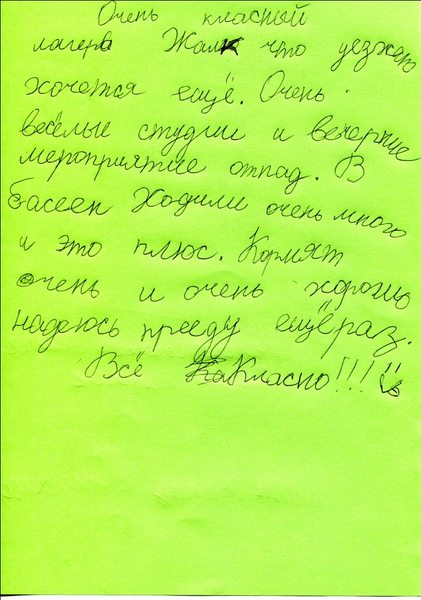 Очень класный
лагерь Жалк что уезжаю
хочется ещё. Очень
весёлые студии и вечерние
мероприятие отпад. В
басеен Ходили очень много
и это плюс. Кормят
очень и очень хорошо
надеюсь прееду ещё раз.
Всё Класно!!!